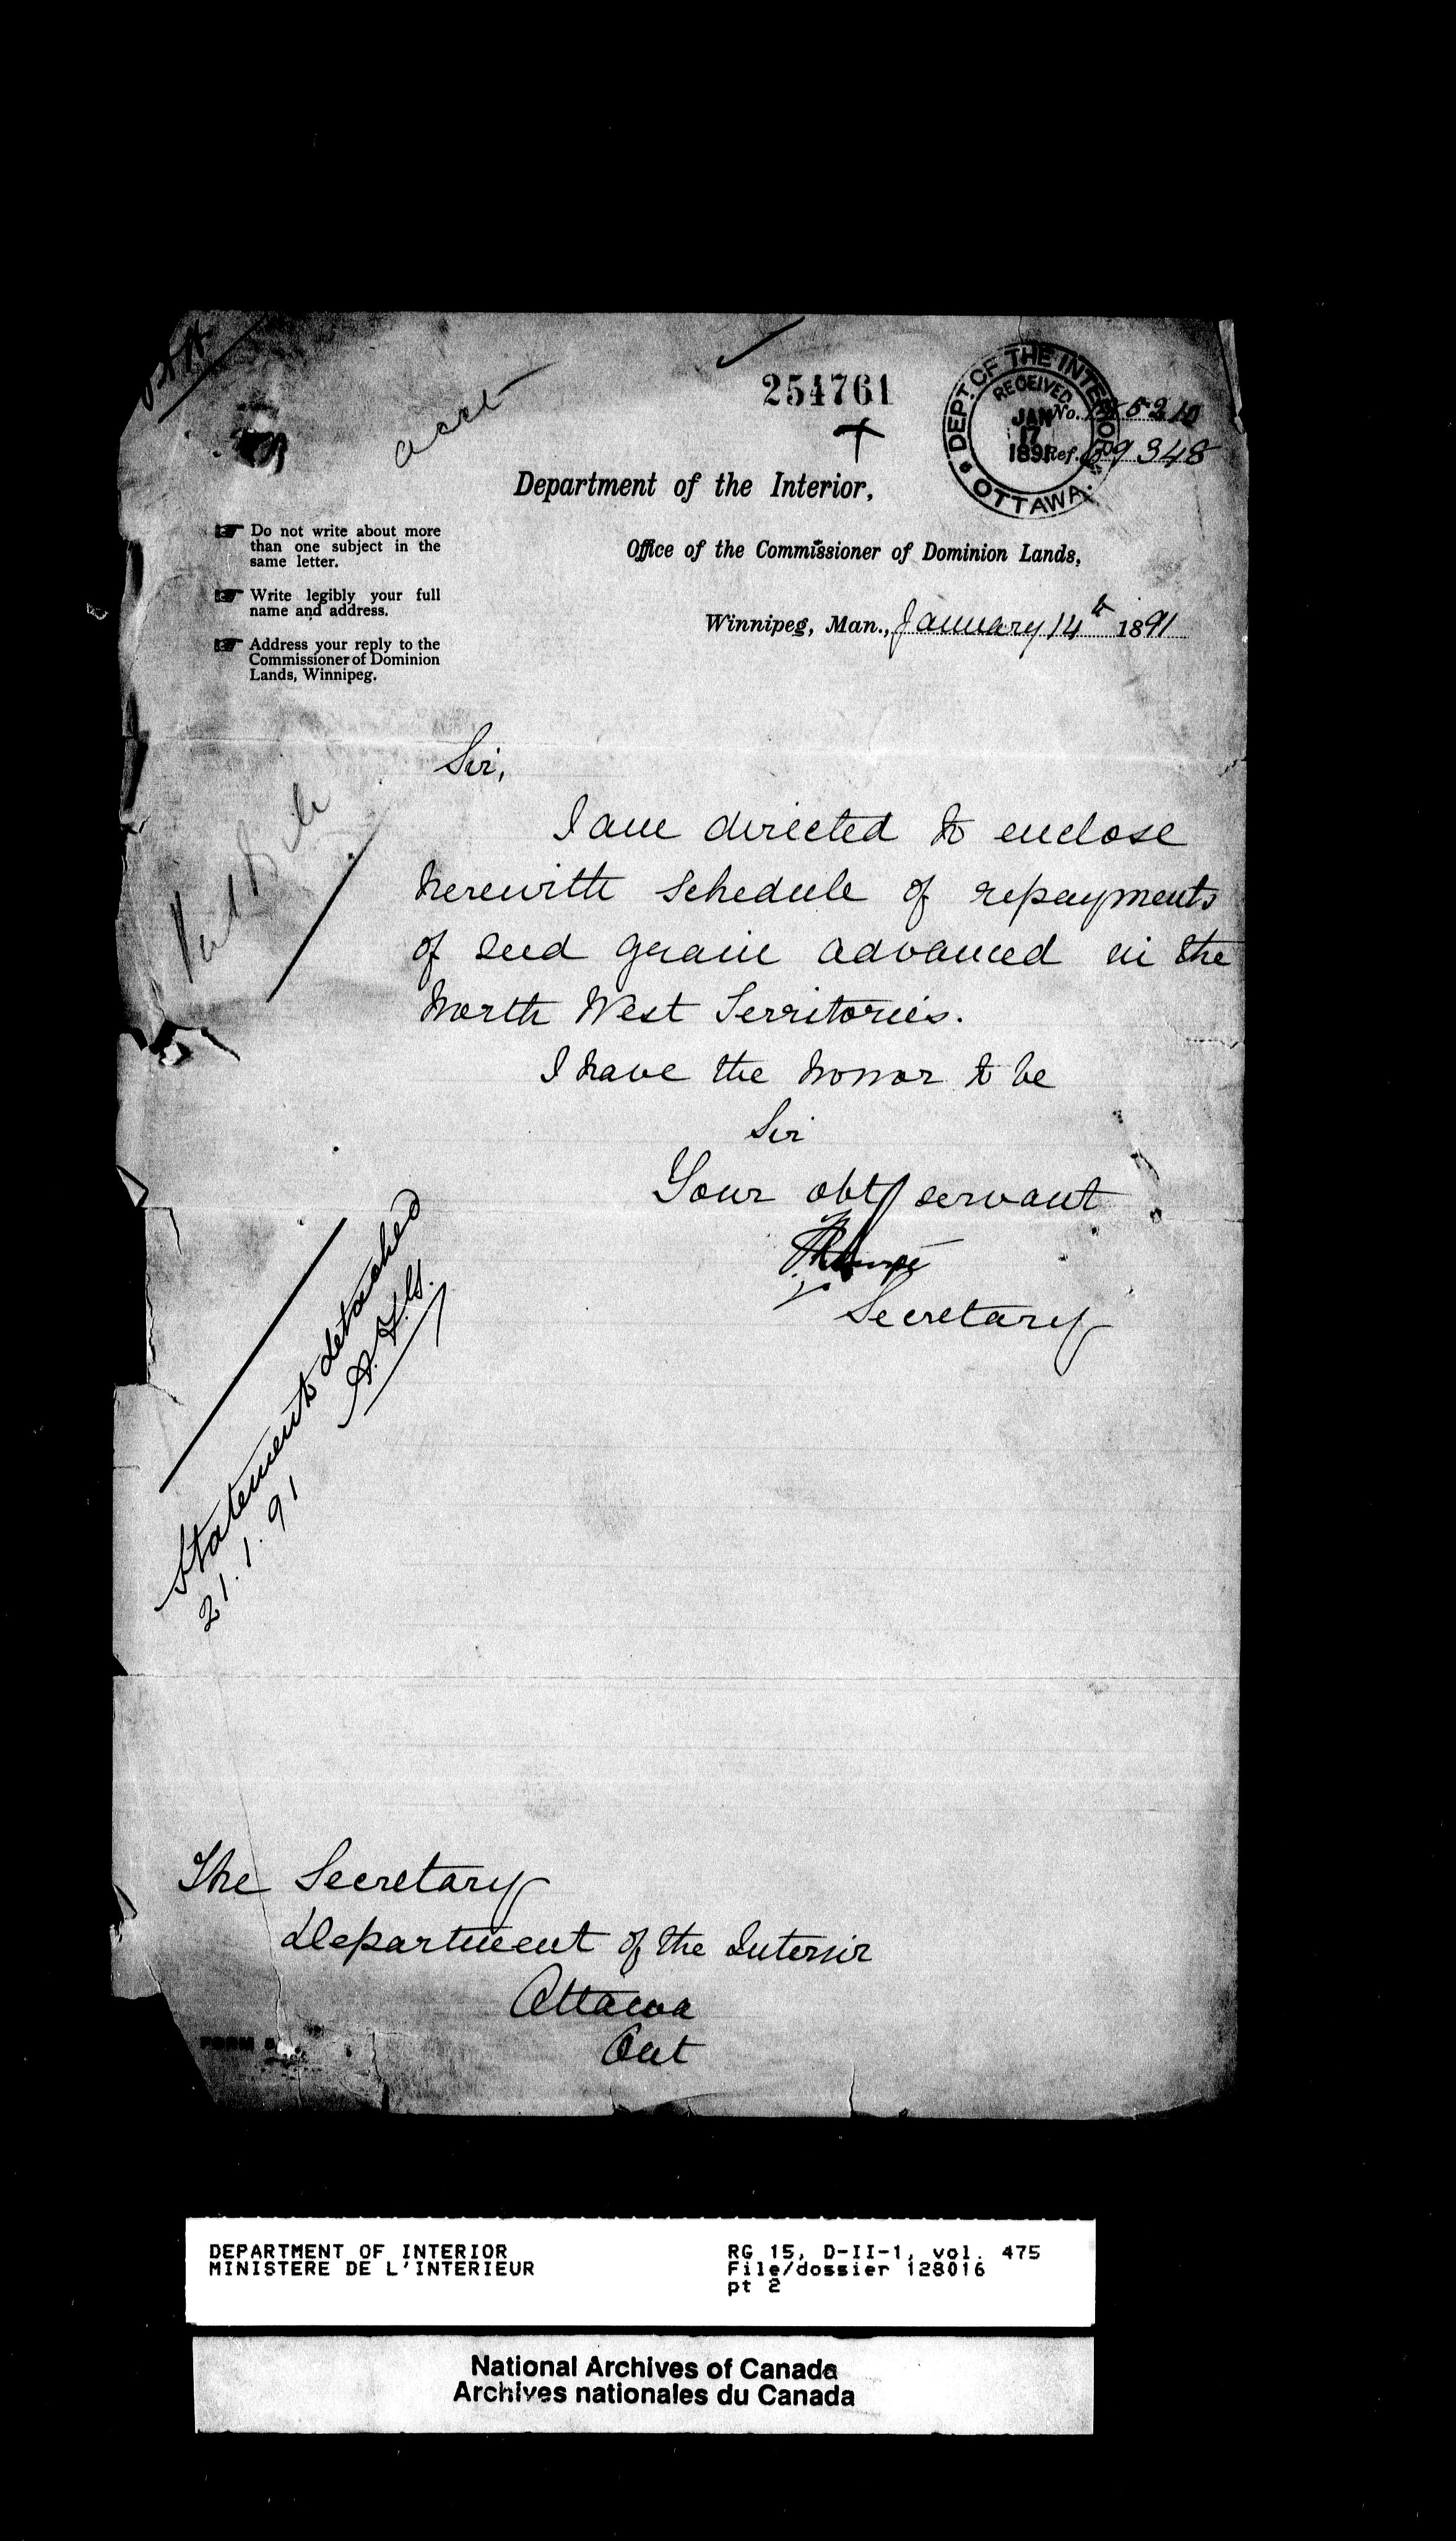 acct
254761
DEPT. OF THE INTERIOR
RECEIVED
JAN
17
1891
OTTAWA.
No.
Ref.
Department of the Interior,
Office of the Commissioner of Dominion Lands,
Winnipeg, Man., January 14th 1891
Do not write about more
than one subject in the
same letter.
Write legibly your full
name and address.
Address your reply to the
Commissioner of Dominion
Lands, Winnipeg.
Sir,
I am directed to enclose
herewith schedule of repayments
of seed grain advanced in the
North West Territories.
I have the honor to be
Sir
Your obt servant
Secretary
Statements detached
21.1.91
The Secretary
Department of the Interior
Ottawa
Ont
FORM
DEPARTMENT OF INTERIOR
MINISTERE DE L'INTERIEUR
RG 15, D-II-1, vol. 475
File/dossier 128016
pt 2
National Archives of Canada
Archives nationales du Canada